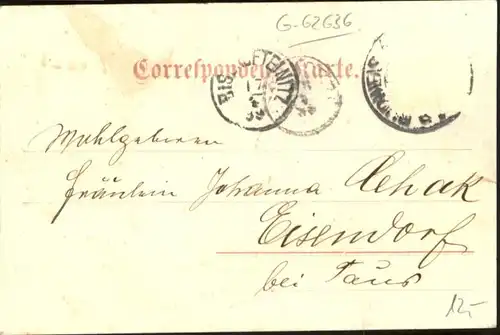 G-62636
Correspondenz-Karte.
BISCHOFTEINITZ
Wohlgeboren
Fräulein Johanna
Eisendorf
bei Taus
12,-